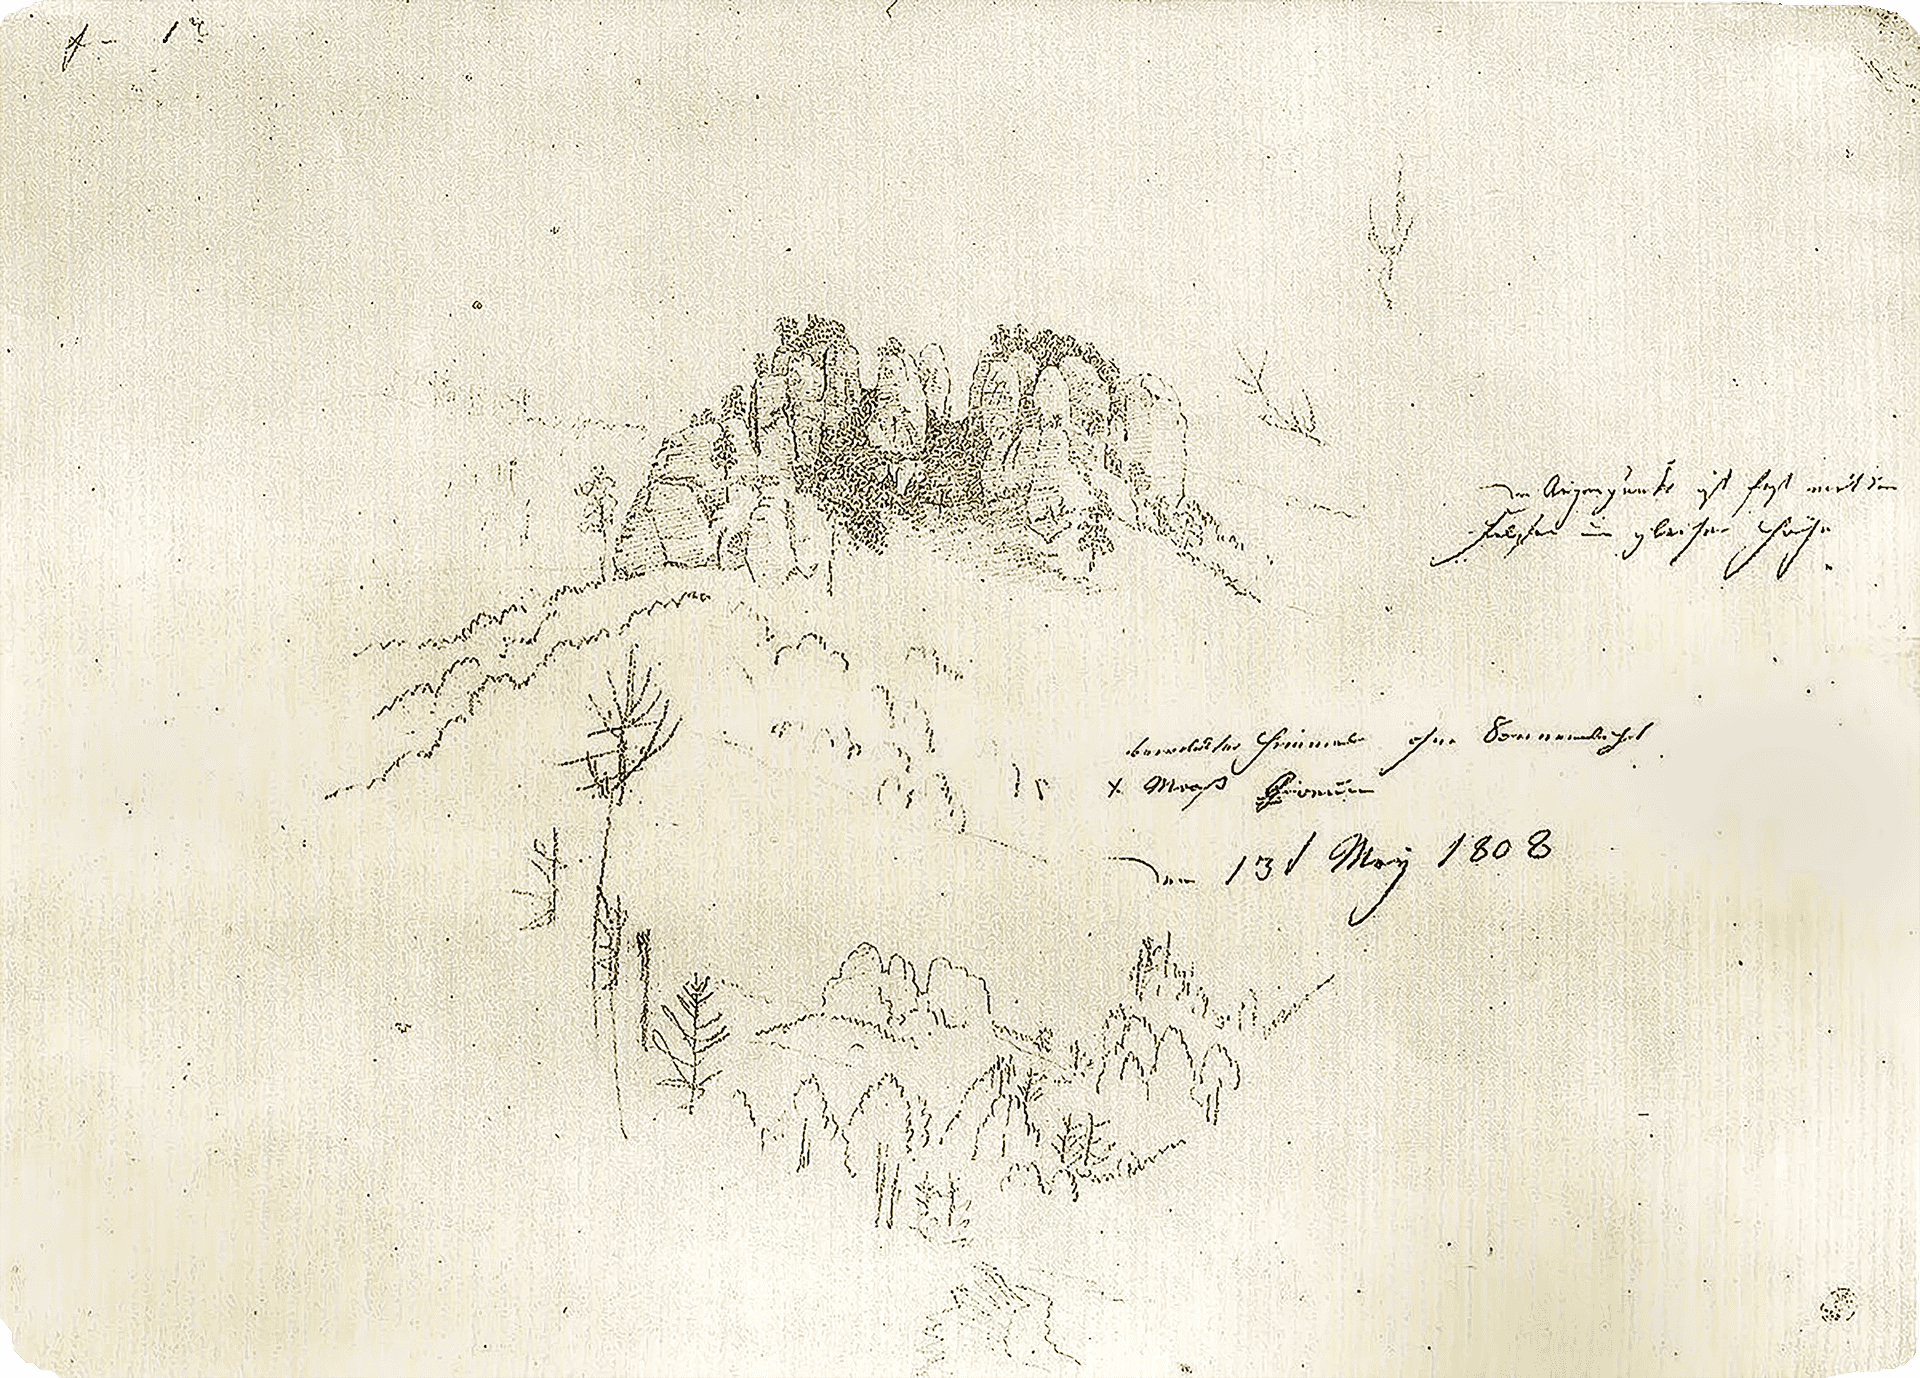 der Augenpunkt ist fast mit den
Felsen in gleicher Höhe
bewölkter Himmel ohne Sonnenlicht
x
den 13t May 1808